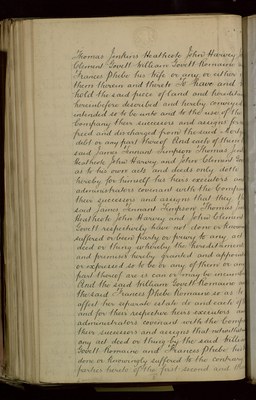 Thomas Jenkins Heathcote John Harvey
Clement Lovett William Lovett Romaine
Frances Phebe his wife or any or either
them therein and thereto To have and
hold the said piece of land and heredita
hereinbefore described and hereby conveyed
intended so to be unto and to the use of the
Company their successors and assigns for
freed and discharged from the said
debt or any part thereof And each of them
said James Tennant Simpson Thomas
Heathcote John Harvey and John Clement
as to his own acts and deeds only doth
hereby for himself his heirs executors
administrators covenant with the Company
their successors and assigns that they
said James Tennant Simpson Thomas
Heathcote John Harvey and John Clement
Lovett respectively have not done or know
suffered or been party or privy to any act
deed or thing whereby the hereditaments
and premises hereby granted and appoin
or expressed so to be or any of them or any
part thereof are is can or may be incumber
And the said William Lovett Romaine
the said Frances Phebe Romaine so as to
affect her separate estate do and each of
and for their respective heirs executors
administrators covenant with the Company
their successors and assigns that notwiths
any act deed or thing by the said William
Lovett Romaine and Frances Phebe his
done or knowingly suffered to the contrary
parties hereto of the first second and